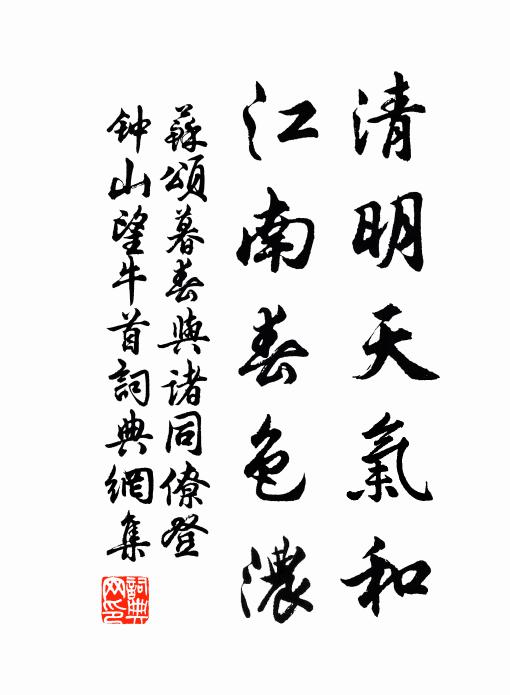 清明天氣和
江南春色濃
蘇頌暮春與諸同僚登
钟山望牛首詞典網集
詞典
网印